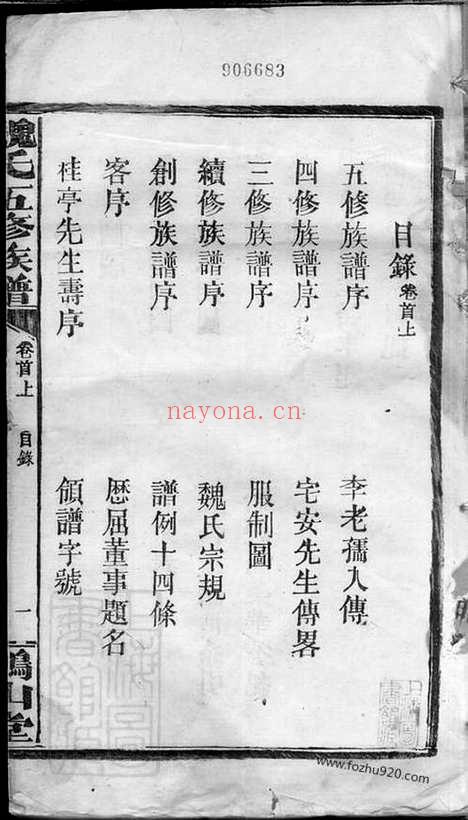 906683
目錄 卷首上
五修族譜序
李老孺人傳
四修族譜序
宅安先生傳畧
三修族譜序
服制圖
續修族譜序
魏氏宗規
創修族譜序
譜例十四條
客序
歷屆董事題名
桂亭先生壽序
領譜字號
魏氏五修族譜
卷首上
目錄
一
鶴山堂
nayona.cn
www.fozhu920.com